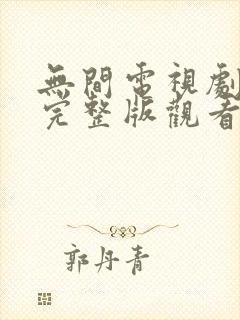 無間電視劇
完整版觀看
郭丹青